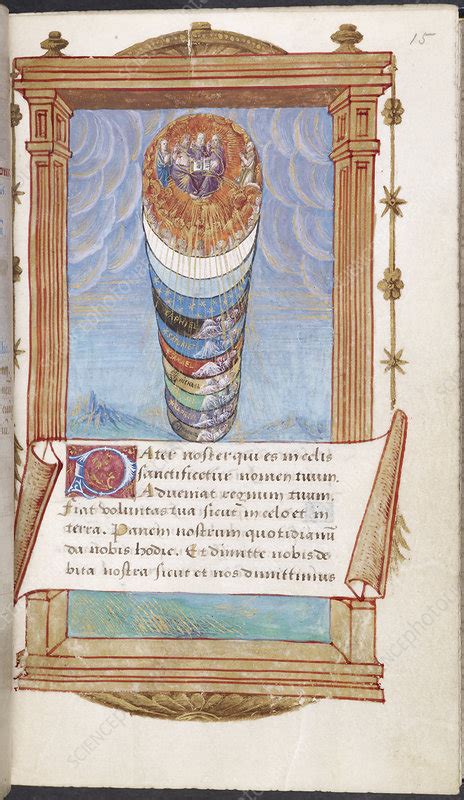 15
RAPHAEL
Pater noster qui es in celis
Sanctificetur nomen tuum.
Adueniat regnum tuum.
Fiat voluntas tua sicut in celo et in
terra. Panem nostrum quotidianū
da nobis hodie. Et dimitte nobis de
bita nostra sicut et nos dimittimus